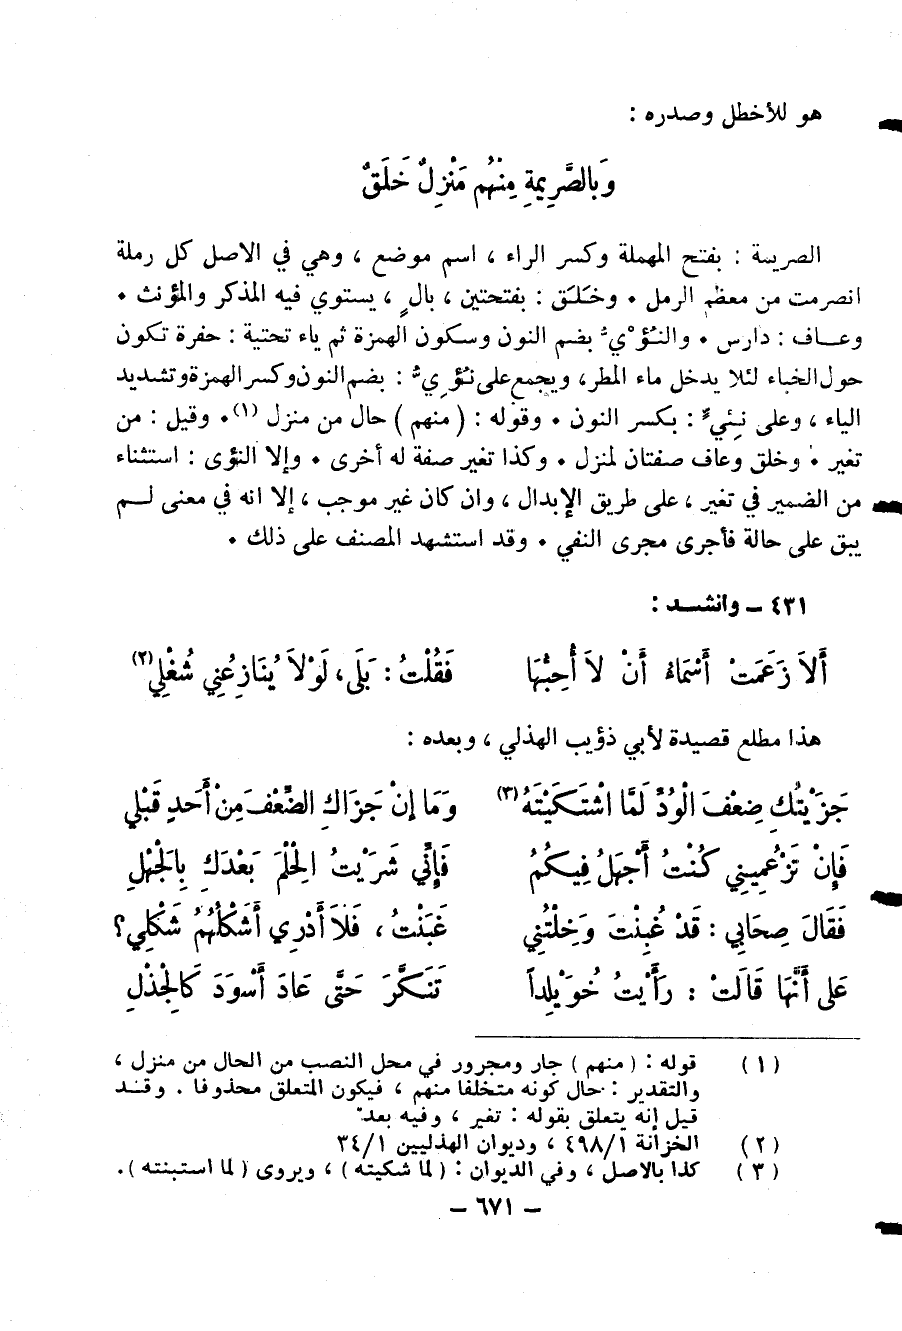 هو للأخطل وصدره :
وَبالصَّرِيمَةِ مِنْهُم مَنْزِلٌ خَلَقٌ
الصريمة : بفتح المهملة وكسر الراء ، اسم موضع ، وهي في الاصل كل رملة
انصرمت من معظم الرمل ٠ وخَلَق : بفتحتين ، بالٍ ، يستوي فيه المذكر والمؤنث ٠
وعــاف : دارس ٠ والنُؤْيُ بضم النون وسكون الهمزة ثم ياء تحتية : حفرة تكون
حول الخباء لئلا يدخل ماء المطر، ويجمع على نُؤِيُّ : بضم النون وكسر الهمزة وتشديد
الياء ، وعلى نِئيٌ : بكسر النون ٠ وقوله : ( منهم ) حال من منزل (١)٠ وقيل : من
تغير ٠ وخلق وعاف صفتان لمنزل ٠ وكذا تغير صفة له أخرى ٠ وإلا النؤى : استثناء
من الضمير في تغير ، على طريق الإبدال ، وان كان غير موجب ، إلا انه في معنى لــم
يبق على حالة فأجرى مجرى النفي ٠ وقد استشهد المصنف على ذلك ٠
٤٣١ ــ وانشـد :
أَلاَ زَعَمَتْ أَسْمَاءُ أَنْ لاَ أُحِبُّهَا فَقُلْتُ : بَلَى، لَوْلاَ يُنَازِعُنِي شُغْلِي(٢)
هذا مطلع قصيدة لأبي ذؤيب الهذلي ، وبعده :
جَزَيْتُكِ ضِعْفَ الْوُدِّ لَمَّا اشْتَكَيْتَهُ(٣) وَمَا إِنْ جَزَاكِ الضَّعْفَ مِنْ أَحَدٍ قَبْلِي
فَإِنْ تَزْعُمِينِي كُنْتُ أَجْهَلُ فِيكُمُ فَإِنِّي شَرَيْتُ الْحِلْمَ بَعْدَكِ بِالْجَهْلِ
فَقَالَ صِحَابِي : قَدْ غُبِنْتَ وَخِلْتُنِي غَبَنْتُ ، فَلاَ أَدْرِي أَشَكْلُهُمُ شَكْلِي؟
عَلَى أَنَّهَا قَالَتْ : رَأَيْتُ خُوَيْلِداً تَنَكَّرَ حَتَّى عَادَ أَسْوَدَ كَالْجِذْلِ
(١) قوله : ( منهم ) جار ومجرور في محل النصب من الحال من منزل ،
والتقدير : حال كونه متخلفا منهم ، فيكون المتعلق محذوفا . وقــد
قيل إنه يتعلق بقوله : تغير ، وفيه بعد٠
(٢) الخزانة ٤٩٨/١ ، وديوان الهذليين ٣٤/١
(٣) كذا بالاصل ، وفي الديوان : ( لما شكيته ) ، ويروى ( لما استبنته ).
ــ ٦٧١ ــ